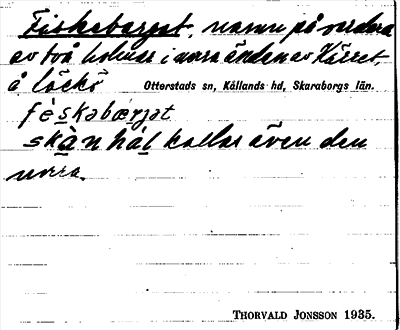 Fiskebärget, namn på vardera
av två holmar i norra änden av Kärret,
å löckö Otterstads sn, Kållands hd, Skaraborgs län.
fèskabærjat
skàn hål kallas även den
norra.
THORVALD JONSSON 1935.